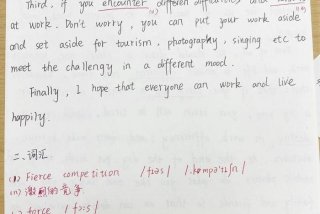 Third, if you encounter different difficulties and
at work. Don't worry, you can put your work aside
and set aside for tourism, photography, singing etc to
meet the challengy in a different mood.
Finally, I hope that everyone can work and live
happily.
二、词汇
(1) Fierce competition /fɪəs/ /ˌkɒmpəˈtɪʃn/
(n) 激烈的竞争
force /fɔːs/